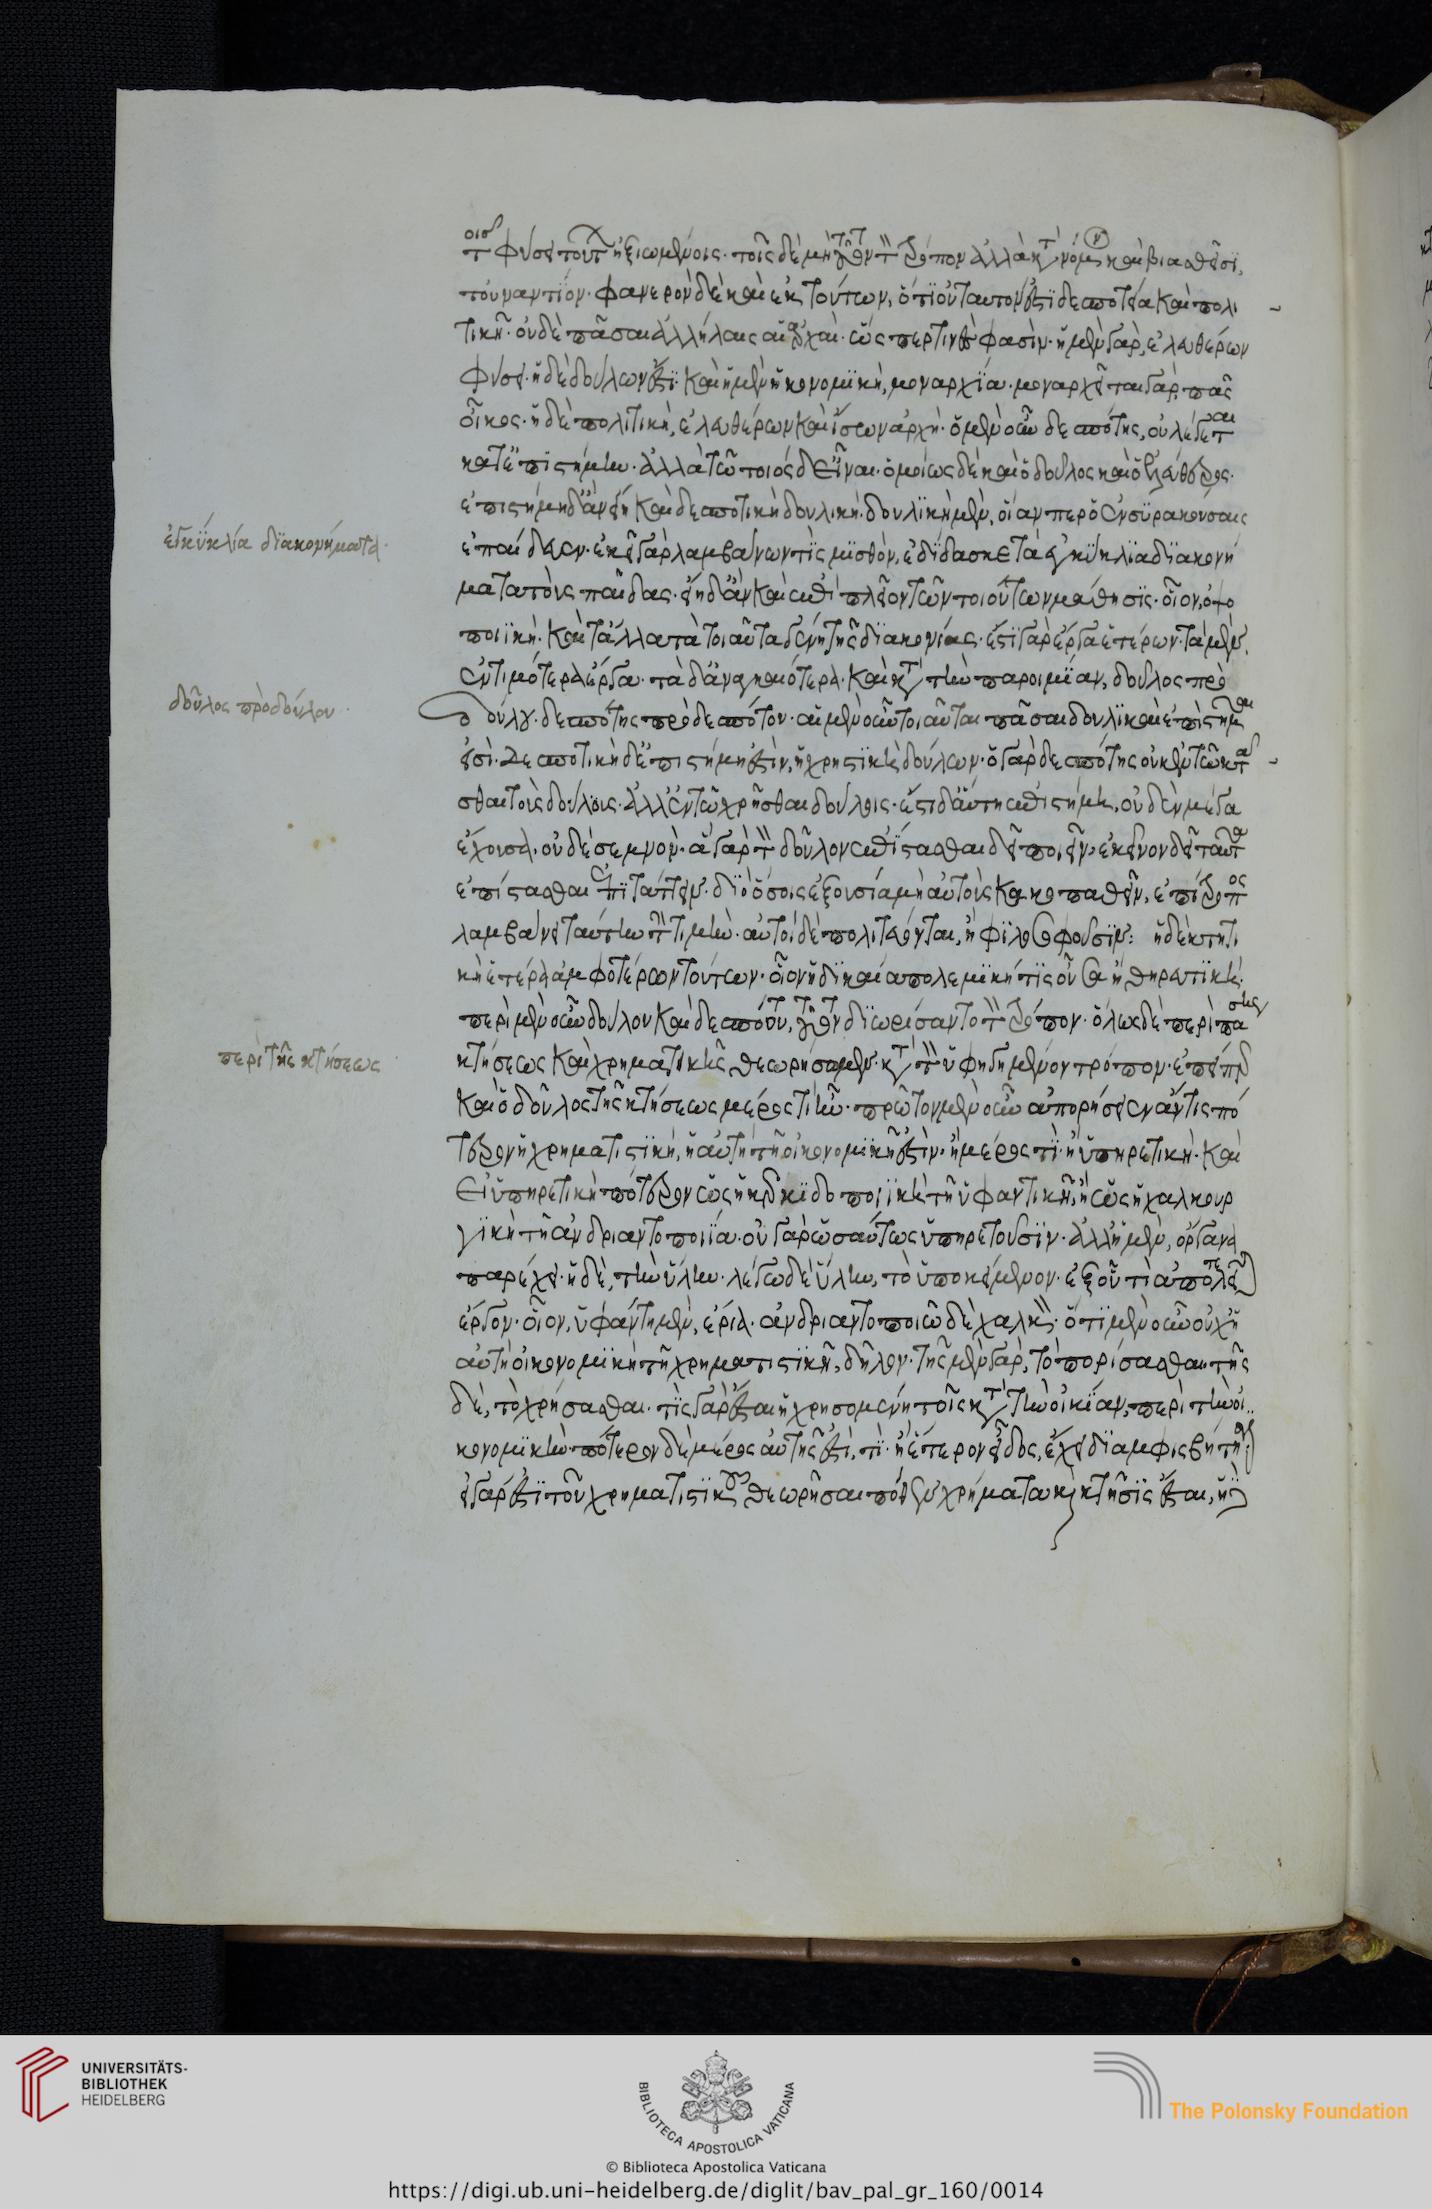 τοῖς φύσει τούτων ἠξιωμένοις· τοῖς δὲ μὴ τοῦτον τὸν τρόπον ἀλλὰ κατὰ νόμον καὶ βιασθεῖσι,
τοὐναντίον· φανερὸν δὲ καὶ ἐκ τούτων, ὅτι οὐ ταυτόν ἐστι δεσποτεία καὶ πολι
τική· οὐδὲ πᾶσαι ἀλλήλαις αἱ ἀρχαί· ὥς περ τινές φασίν· ἡ μὲν γὰρ, ἐλευθέρων
φύσει· ἡ δὲ δούλων ἐστί· καὶ ἡ μὲν ἠκονομική, μοναρχία· μοναρχεῖται γὰρ πᾶς
οἶκος· ἡ δὲ πολιτική, ἐλευθέρων καὶ ἴσων ἀρχή· ὁ μὲν οὖν δεσπότης, οὐ λέγεται
κατ' ἐπιστήμην· ἀλλὰ τῷ τοιόςδ' εἶναι· ὁμοίως δὲ καὶ ὁ δοῦλος καὶ ὁ ἐλεύθερος·
ἐπιστήμη δ' ἂν εἴη καὶ δεσποτικὴ δουλική· δουλικὴ μὲν, οἵαν περ ὁ ἐν συρακούσαις
ἐγκύκλια διακονήματα·
ἐπαίδευεν· ἐκεῖ γὰρ λαμβάνων τὶς μισθόν, ἐδίδασκε τὰ ἐγκύκλια διακονή
ματα τοὺς παῖδας· εἴη δ' ἂν καὶ ἐπὶ πλεῖον τῶν τοιούτων μάθησις· οἷον, ὀψο
ποιική· καὶ τἄλλα τὰ τοιαῦτα γένη τῆς διακονίας· ἔστι γὰρ ἔργα ἑτέρων· τὰ μὲν
ἐντιμότερα ἔργα· τὰ δ' ἀναγκαιότερα· καὶ κατὰ τὴν παροιμίαν, δοῦλος πρὸ
δοῦλος πρὸ δούλου·
δούλου· δεσπότης πρὸ δεσπότου· αἱ μὲν οὖν τοιαῦται πᾶσαι δουλικαὶ ἐπιστῆμαι
εἰσί· Δεσποτικὴ δ' ἐπιστήμη ἐστὶν, ἡ χρηστικὴ δούλων· ὁ γὰρ δεσπότης οὐκ ἐν τῷ κτᾶ
σθαι τοὺς δούλους· ἀλλ' ἐν τῷ χρῆσθαι δούλοις· ἔστι δ' αὕτη ἐπιστήμη, οὐδὲν μέγα
ἔχουσα· οὐδὲ σεμνόν· ἃ γὰρ τὸν δοῦλον ἐπίστασθαι δεῖ ποιεῖν, ἐκεῖνον δεῖ ταῦτα
ἐπίστασθαι ἐπιτάττειν· διὸ ὅσοις ἐξουσία μὴ αὐτοὺς κακοπαθεῖν, ἐπίτροπος
λαμβάνει ταύτην τὴν τιμήν· αὐτοὶ δὲ πολιτεύονται, ἢ φιλοσοφοῦσιν: ἡ δὲ κτητι
κὴ ἑτέρα ἀμφοτέρων τούτων· οἷον ἡ δικαία πολεμική τις οὖσα ἢ θηρευτική·
περὶ μὲν οὖν δούλου καὶ δεσπότου, τοῦτον διωρίσαντο τὸν τρόπον· ὅλως δὲ περὶ πάσης
περὶ τῆς κτήσεως·
κτήσεως καὶ χρηματιστικῆς θεωρήσωμεν· κατὰ τὸν ὑφηγημένον τρόπον· ἐπείπερ
καὶ ὁ δοῦλος τῆς κτήσεως μέρος τι ἦν· πρῶτον μὲν οὖν ἀπορήσειεν ἄν τις πό
τερον ἡ χρηματιστική, ἡ αὐτὴ τῇ οἰκονομικῇ ἐστὶν· ἢ μέρος τι· ἢ ὑπηρετική· καὶ
εἰ ὑπηρετικὴ πότερον ὡς ἡ κερκιδοποιικὴ τῇ ὑφαντικῇ, ἢ ὡς ἡ χαλκουρ
γικὴ τῇ ἀνδριαντοποιία· οὐ γὰρ ὡσαύτως ὑπηρετοῦσιν· ἀλλ' ἡ μὲν, ὄργανα
παρέχει· ἡ δὲ, τὴν ὕλην· λέγω δὲ ὕλην, τὸ ὑποκείμενον· ἐξ οὗ τὶ ἀποτελεῖται
ἔργον· οἷον, ὑφάντη μὲν, ἔρια· ἀνδριαντοποιῷ δὲ χαλκόν· ὅτι μὲν οὖν οὐχ ἡ
αὐτὴ οἰκονομικὴ τῇ χρηματιστικῇ, δῆλον· τῆς μὲν γὰρ, τὸ πορίσασθαι· τῆς
δὲ, τὸ χρήσασθαι· τίς γὰρ ἔσται ἡ χρησομένη τοῖς κατὰ τὴν οἰκίαν, περὶ τὴν οἰ
κονομικήν· πότερον δὲ μέρος αὐτῆς ἐστί, τι· ἢ ἕτερον εἶδος, ἔχει διαμφισβήτησιν·
εἰ γάρ ἐστι τοῦ χρηματιστικοῦ θεωρῆσαι πόθεν χρήματα καὶ κτῆσις ἔσται, ἡ
UNIVERSITÄTS-
BIBLIOTHEK
HEIDELBERG
BIBLIOTECA APOSTOLICA VATICANA
The Polonsky Foundation
© Biblioteca Apostolica Vaticana
https://digi.ub.uni-heidelberg.de/diglit/bav_pal_gr_160/0014